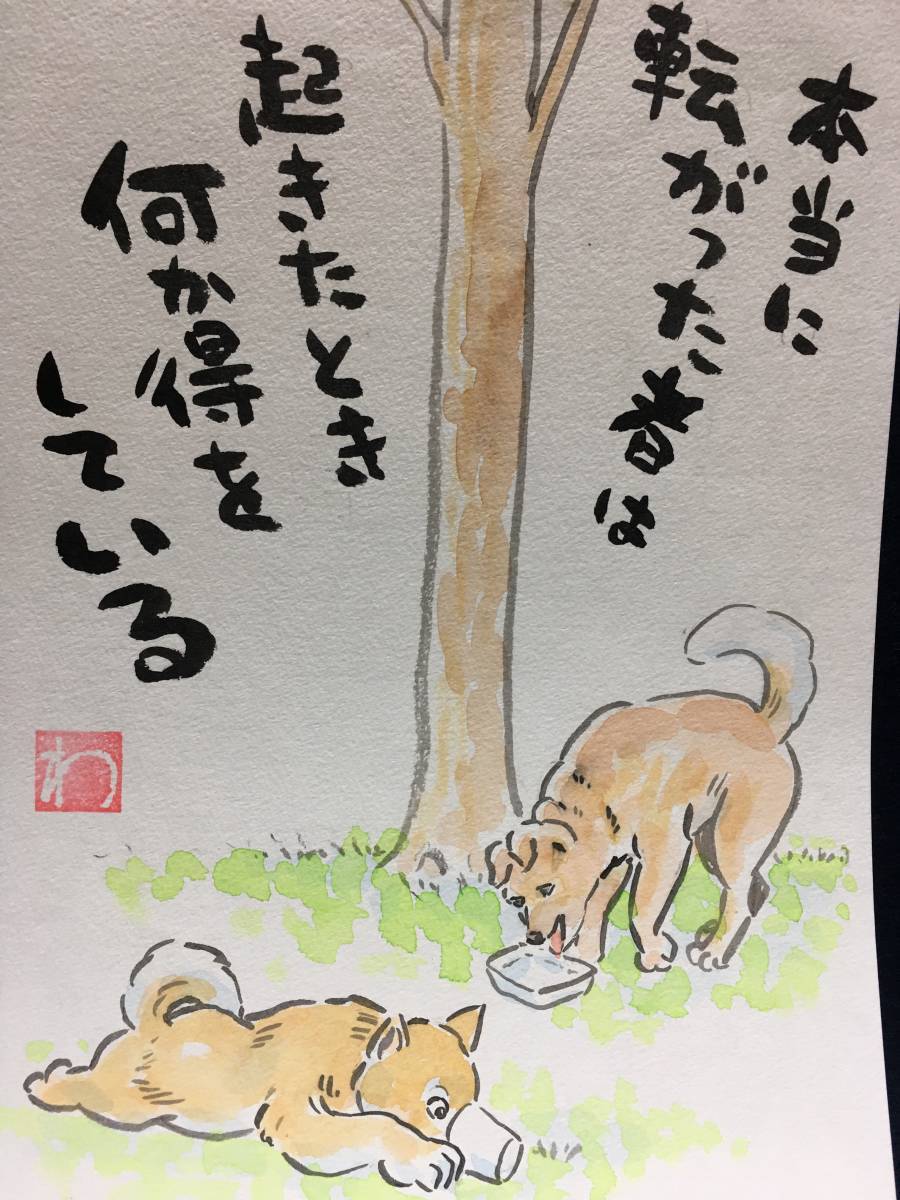 本当に
転がった者は
起きたとき
何か得を
している
わ